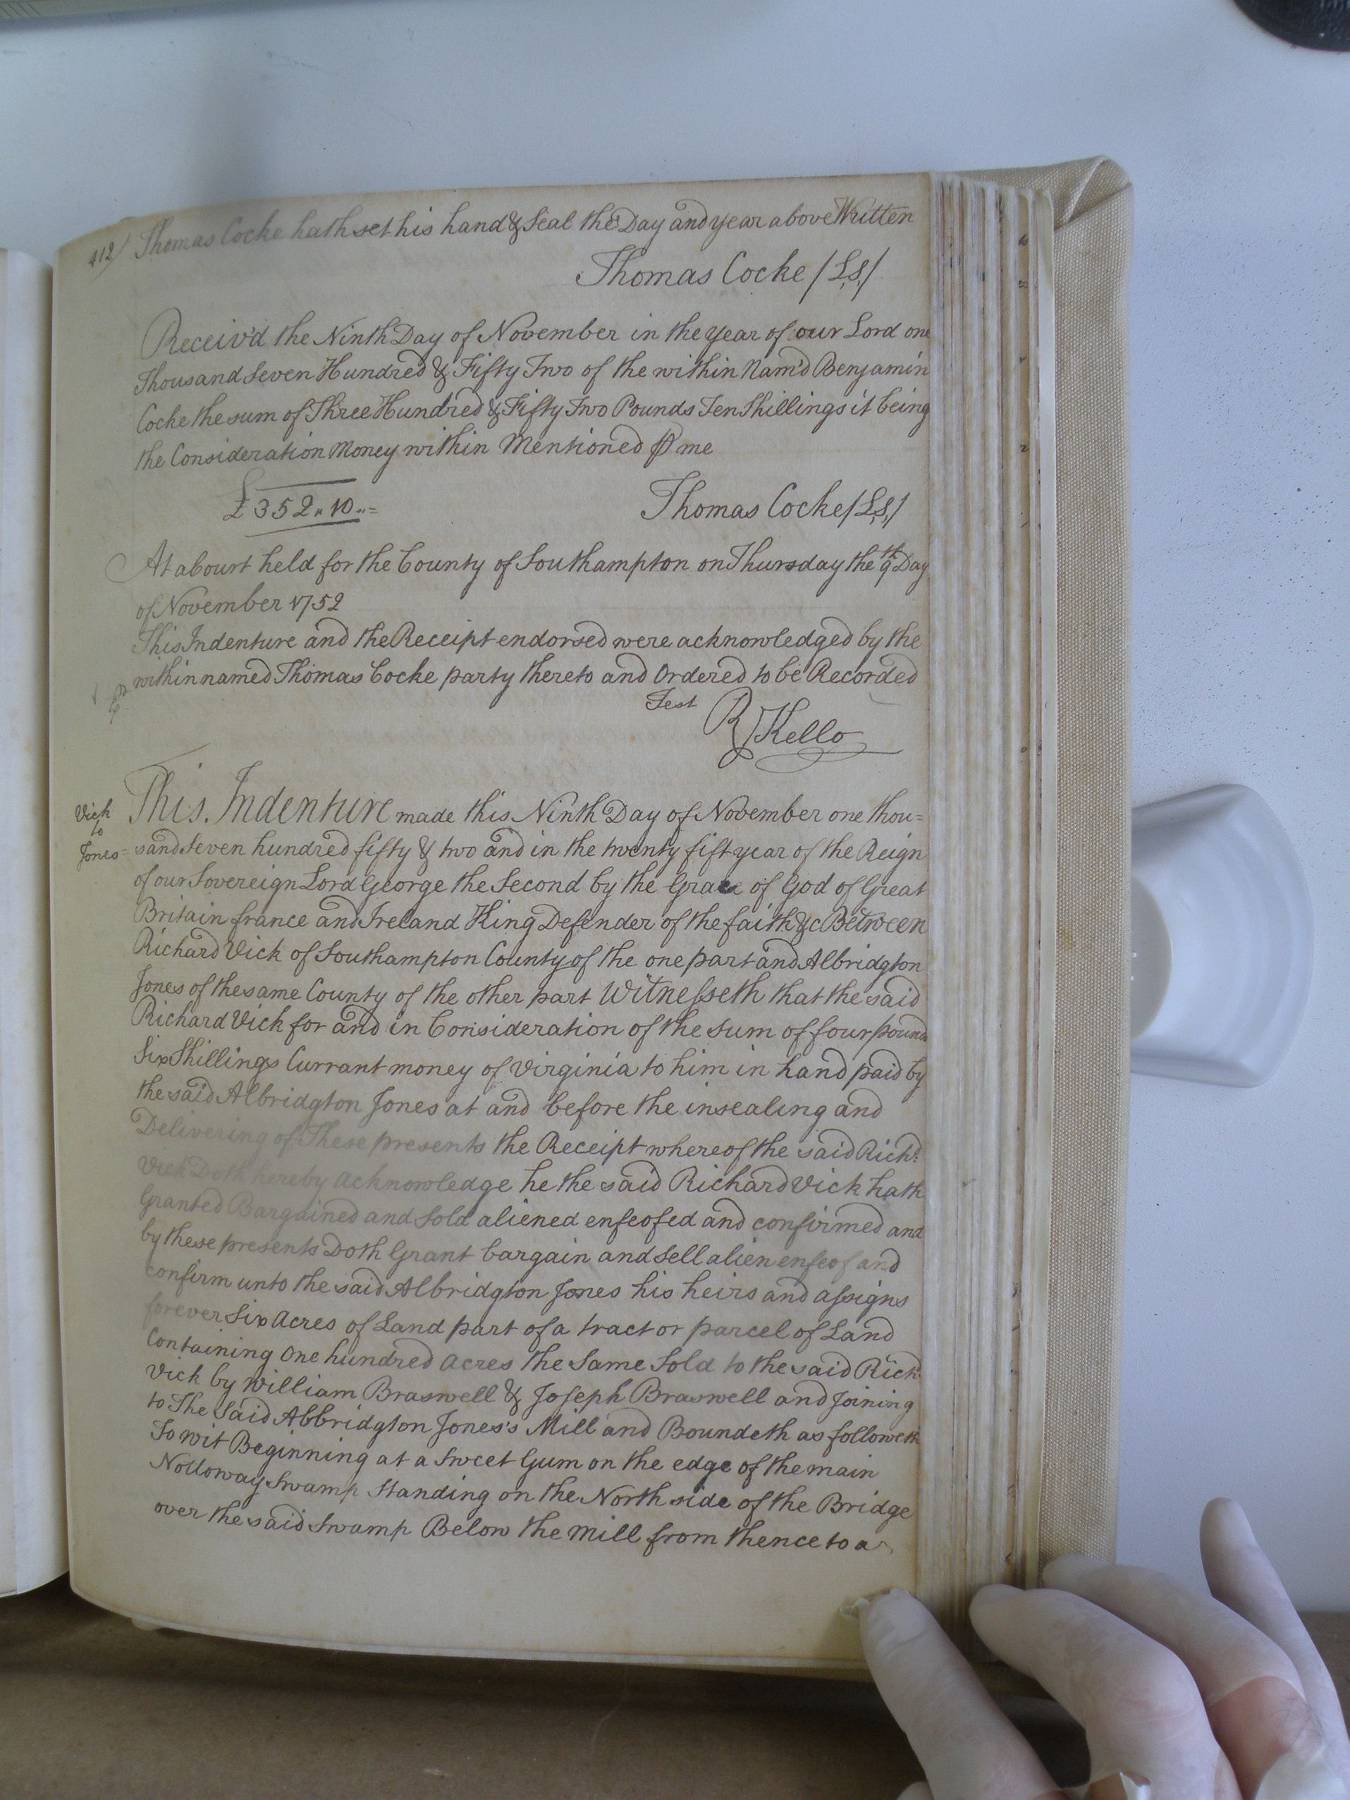 412) Thomas Cocke hath set his hand & Seal the Day and year above Written
Thomas Cocke /L,S,/
Receiv'd the Ninth Day of November in the year of our Lord one
Thousand Seven Hundred & Fifty Two of the within Nam'd Benjamin
Cocke the sum of Three Hundred & Fifty Two Pounds Ten Shillings it being
the Consideration Money within Mentioned p me
£352,,10,,=
Thomas Cocke /L,S,/
At a Court held for the County of Southampton on Thursday the 9th Day
of November 1752
This Indenture and the Receipt endorsed were acknowledged by the
within named Thomas Cocke party thereto and Ordered to be Recorded
Test
R Kello
Vick
to
Jones
This Indenture made this Ninth Day of November one thou=
sand Seven hundred fifty & two and in the twenty fift year of the Reign
of our Sovereign Lord George the Second by the Grace of God of Great
Britain france and Ireland King Defender of the faith &c Between
Richard Vick of Southampton County of the one part and Albridgton
Jones of the same County of the other part Witnesseth that the said
Richard Vick for and in Consideration of the sum of four pound
Six Shillings Currant money of Virginia to him in hand paid by
the said Albridgton Jones at and before the insealing and
Delivering of These presents the Receipt whereof the said Richd
Vick Doth hereby acknowledge he the said Richard Vick hath
Granted Bargained and Sold aliened enfeofed and confirmed and
by these presents Doth Grant bargain and Sell alien enfeof and
confirm unto the said Albridgton Jones his heirs and assigns
forever Six Acres of Land part of a tract or parcel of Land
Containing One hundred Acres the Same Sold to the said Richd
Vick by William Braswell & Joseph Braswell and Joining
to The Said Abbridgton Jones's Mill and Boundeth as followeth
To wit Beginning at a Sweet Gum on the edge of the main
Nottoway Swamp Standing on the North side of the Bridge
over the said Swamp Below the Mill from thence to a